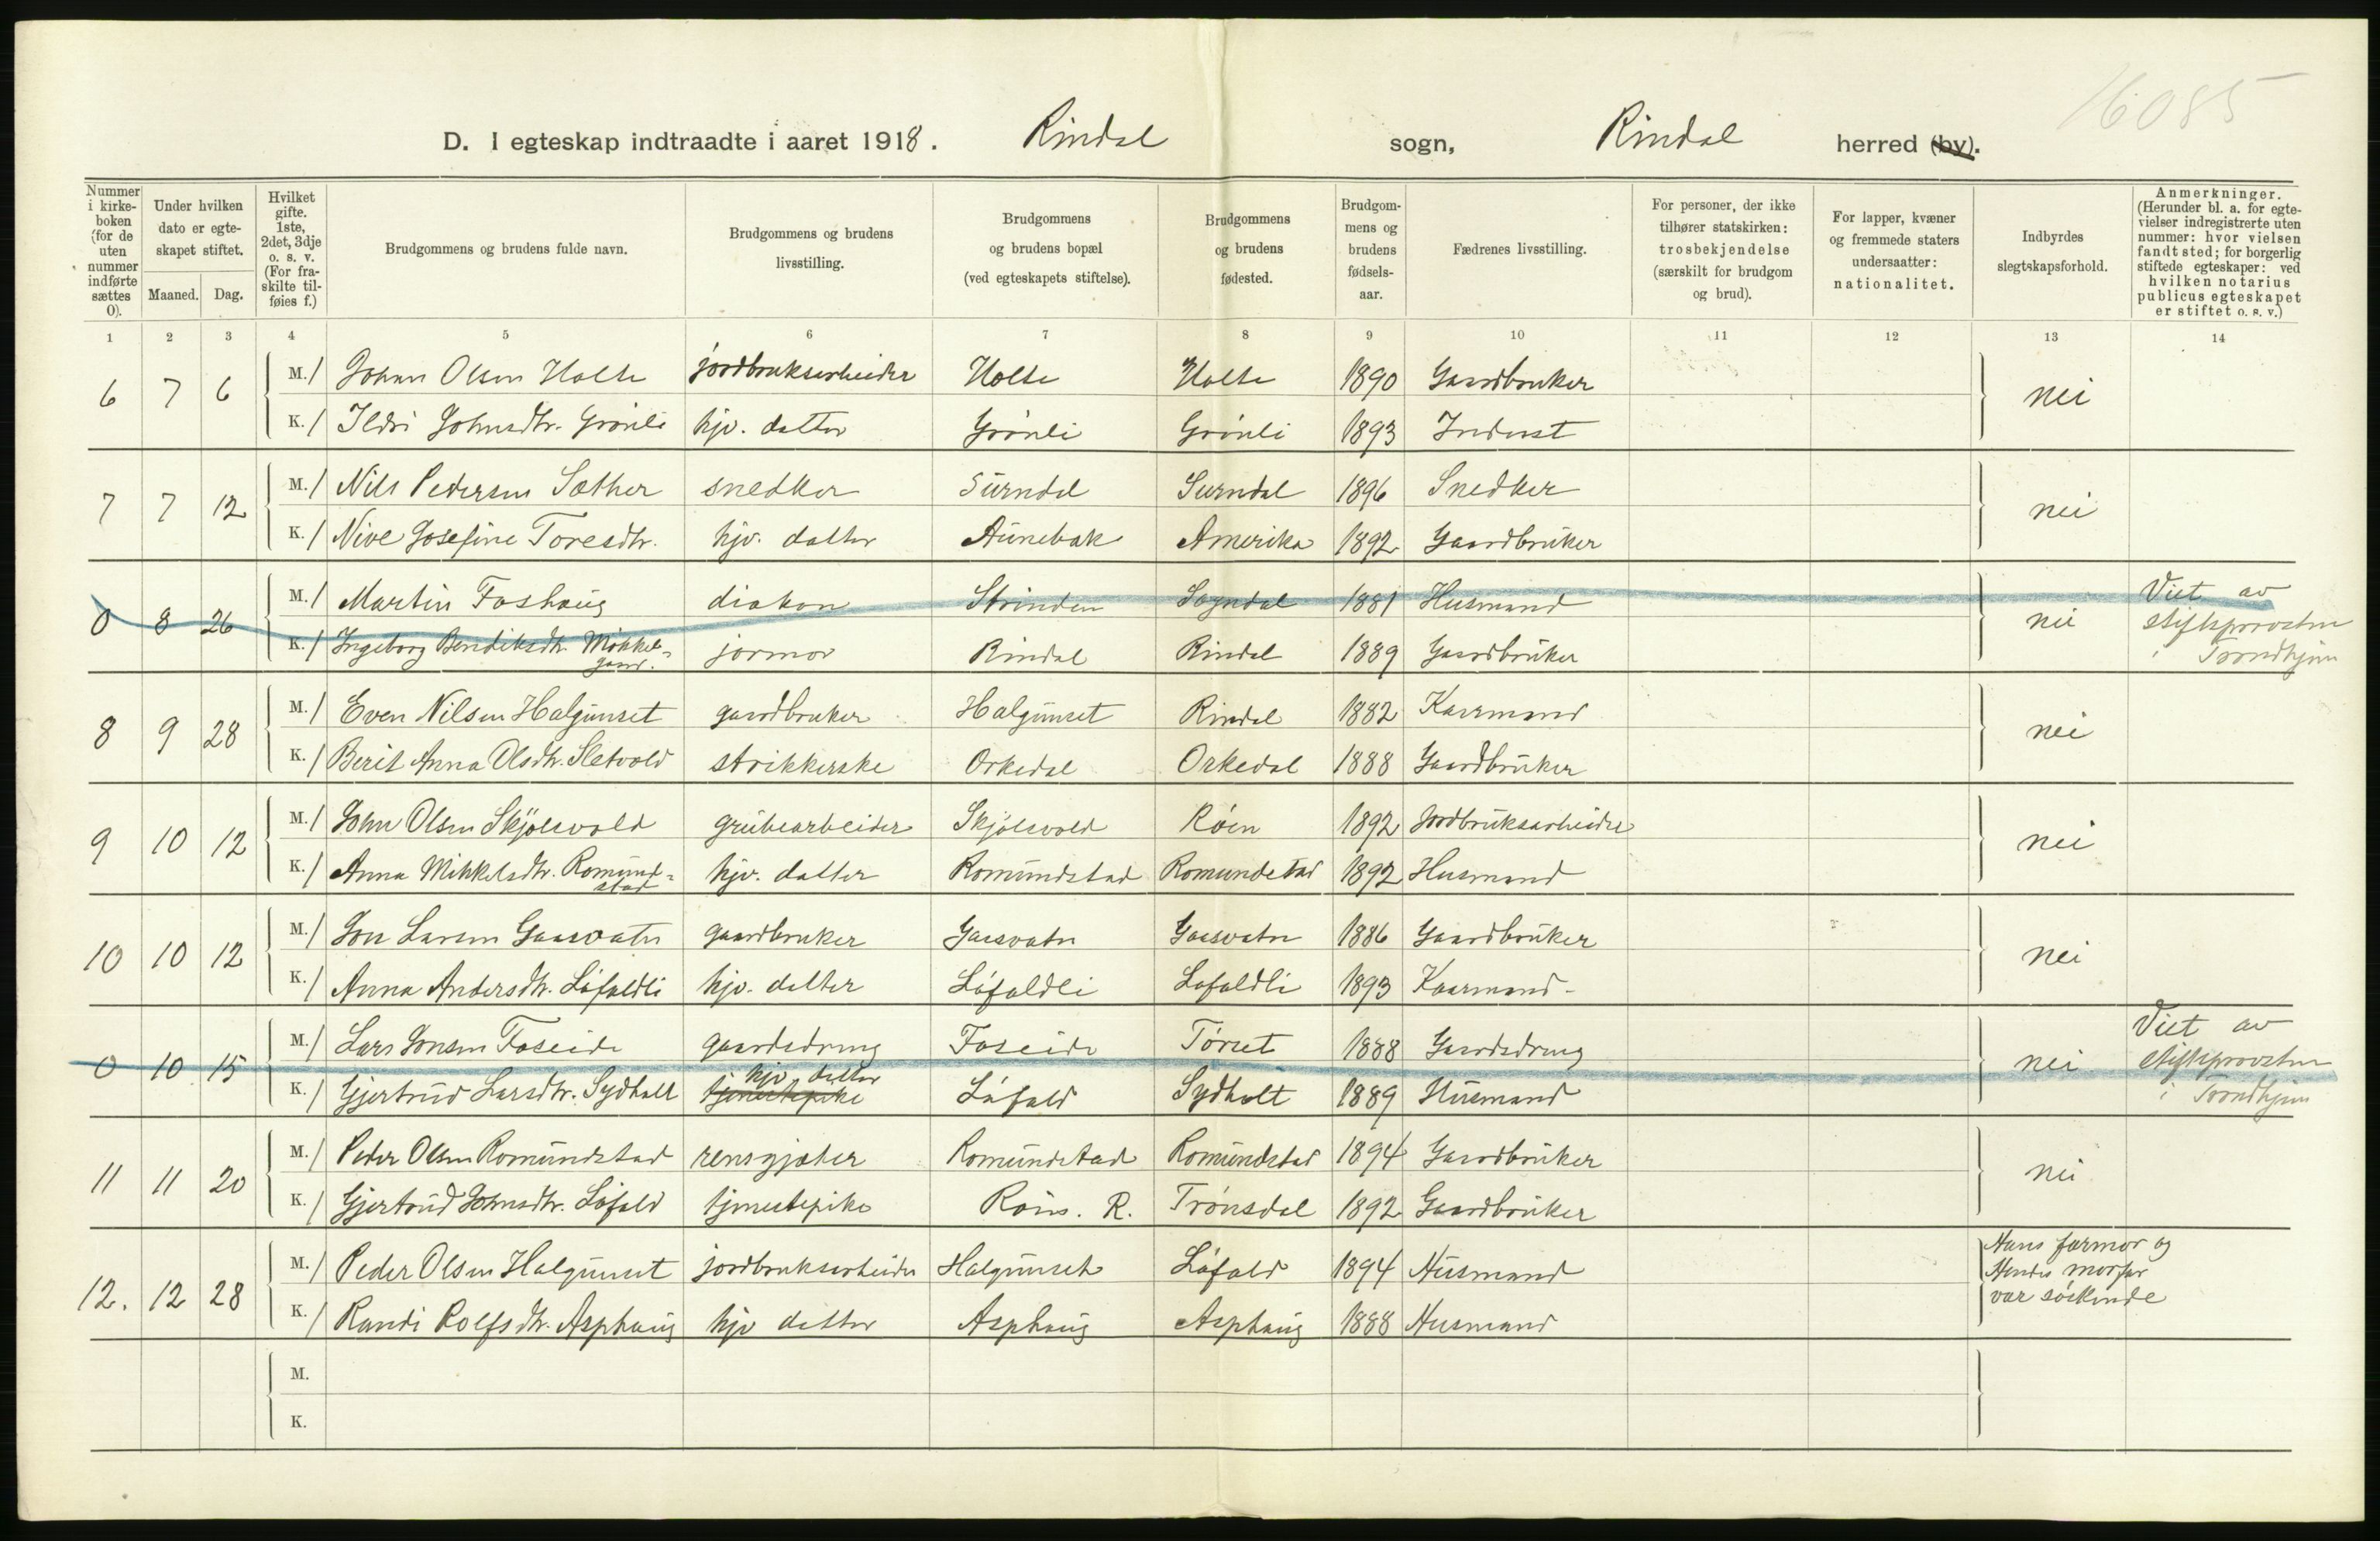 16085
D. I egteskap indtraadte i aaret 1918. Rindal sogn, Rindal herred (by).
Nummer i kirke-boken (for de uten nummer indførte sættes 0).
Under hvilken dato er egte-skapet stiftet.
Maaned. Dag.
Hvilket gifte. 1ste, 2det, 3dje o. s. v. (For fra-skilte til-føies f.)
Brudgommens og brudens fulde navn.
Brudgommens og brudens livsstilling.
Brudgommens og brudens bopæl (ved egteskapets stiftelse).
Brudgommens og brudens fødested.
Brudgom-mens og brudens fødsels-aar.
Fædrenes livsstilling.
For personer, der ikke tilhører statskirken: trosbekjendelse (særskilt for brudgom og brud).
For lapper, kvæner og fremmede staters undersaatter: nationalitet.
Indbyrdes slegtskapsforhold.
Anmerkninger. (Herunder bl. a. for egte-vielser indregistrerte uten nummer: hvor vielsen fandt sted; for borgerlig stiftede egteskaper: ved hvilken notarius publicus egteskapet er stiftet o. s. v.)
1 2 3 4 5 6 7 8 9 10 11 12 13 14
6 7 6 M. 1 Johan Olsen Holte jordbruksarbeider Holte Holte 1890 Gaardbruker nei
K. 1 Ildri Johnsdtr. Grönli hjv. datter Grönli Grönli 1893 Inderst
7 7 12 M. 1 Nils Pedersen Sæther snedker Surndal Surndal 1896 Snedker nei
K. 1 Nive Josefine Toresdtr. hjv. datter Aunebak Amerika 1892 Gaardbruker
0 8 26 M. 1 Martin Foshaug diakon Strinden Sogndal 1881 Husmand nei Viet av stiftsprovsten i Trondhjem
K. 1 Ingeborg Bendiksdtr. Mikkel-gaard. jormor Rindal Rindal 1889 Gaardbruker
8 9 28 M. 1 Even Nilsen Halgunset gaardbruker Halgunset Rindal 1882 Kaarmand nei
K. 1 Berit Anna Olsdtr. Sletvold strikkerske Orkedal Orkedal 1888 Gaardbruker
9 10 12 M. 1 John Olsen Skjölsvold grubearbeider Skjölsvold Röen 1892 Jordbruksarbeider nei
K. 1 Anna Mikkelsdtr. Romund-stad hjv. datter Romundstad Romundstad 1892 Husmand
10 10 12 M. 1 Jon Larsen Gaasvatn gaardbruker Gaasvatn Gaasvatn 1886 Gaardbruker nei
K. 1 Anna Andersdtr. Löfaldli hjv. datter Löfaldli Löfaldli 1893 Kaarmand
0 10 15 M. 1 Lars Jonsen Foseide gaardsdreng Foseide Törset 1888 Gaardsdreng nei Viet av stiftsprovsten i Trondhjem
K. 1 Gjertrud Larsdtr. Sydhalt tjenestepike hjv. datter Löfald Sydhalt 1889 Husmand
11 11 20 M. 1 Peder Olsen Romundstad rensgjæter Romundstad Romundstad 1894 Gaardbruker nei
K. 1 Gjertrud Johnsdtr. Löfald tjenestepike Röen. R. Trönsdal 1892 Gaardbruker
12. 12 28 M. 1 Peder Olsen Halgunset jordbruksarbeider Halgunset Löfald 1894 Husmand Hans farmor og Hendes morfar var söskende
K. 1 Randi Rolfsdtr. Asphaug hjv datter Asphaug Asphaug 1888 Husmand
M.
K.